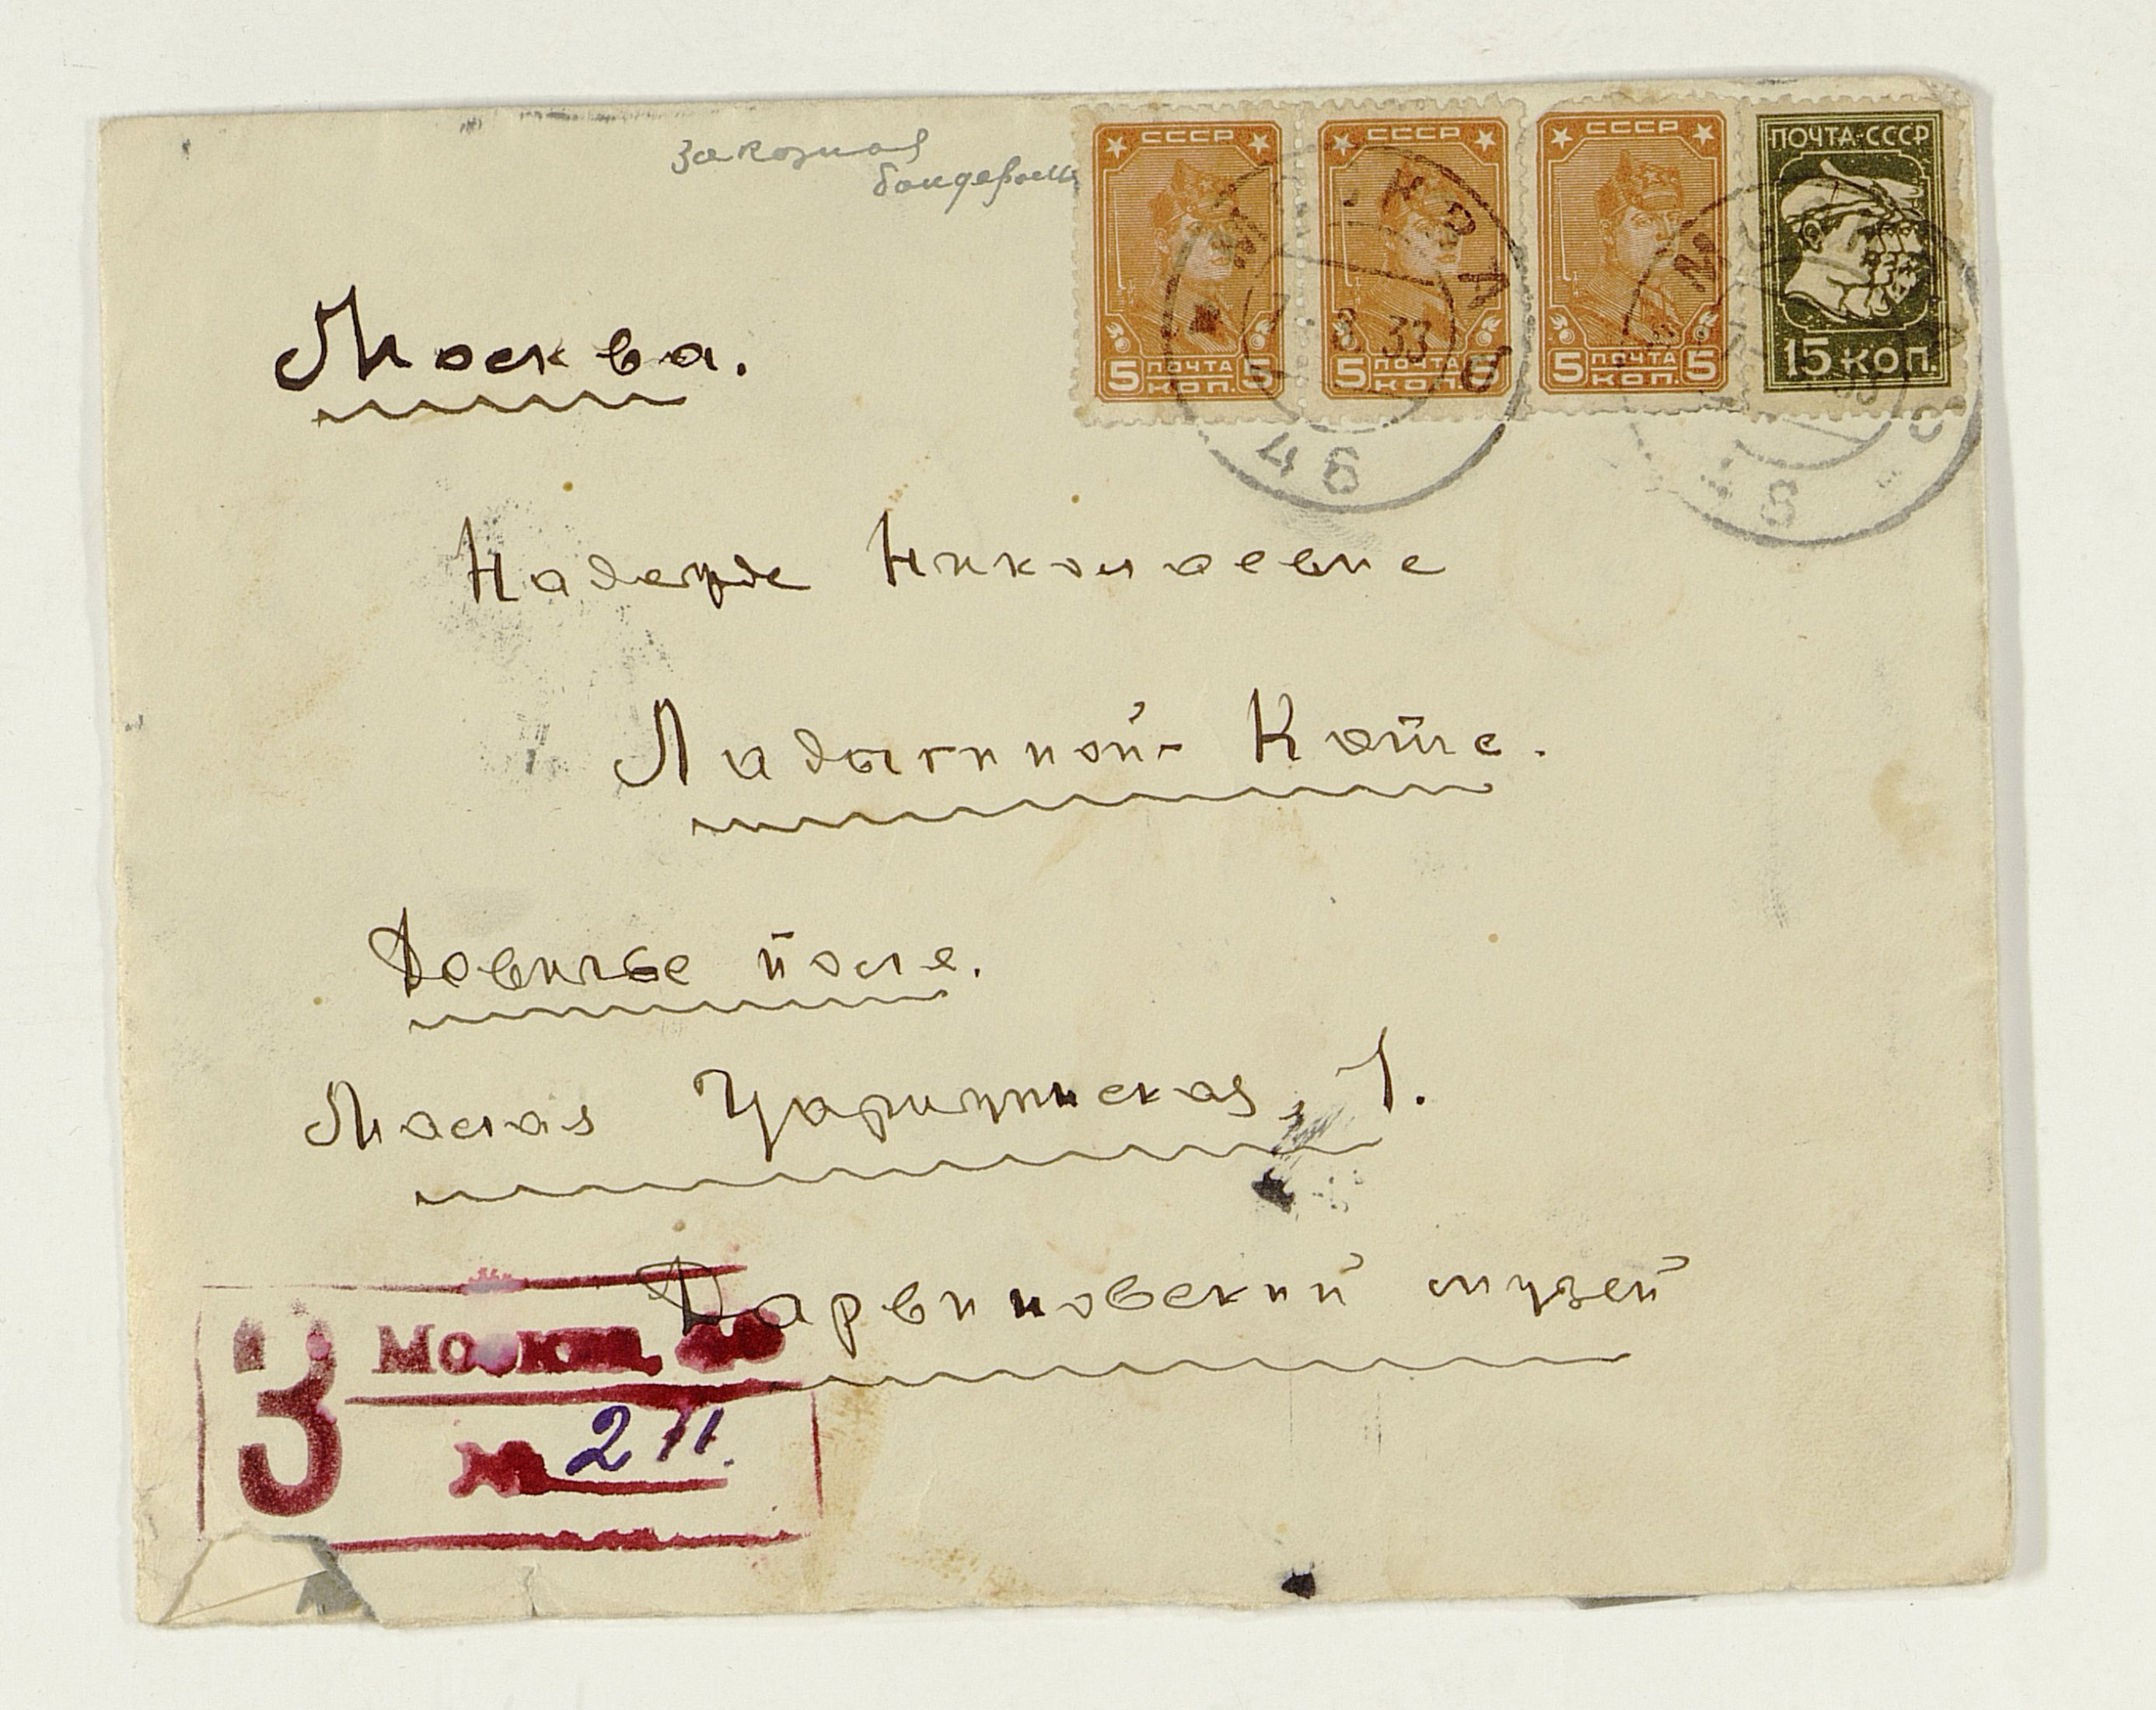 заказная
бандероль
СССР
ПОЧТА
5 КОП. 5
СССР
ПОЧТА
5 КОП. 5
СССР
ПОЧТА
5 КОП. 5
ПОЧТА·СССР
15 КОП.
МОСКВА
8 33
46
Москва.
Надежде Николаевне
Ладыгиной-Котс.
Девичье поле.
Малая Царицынская, 1.
Дарвиновский музей
З
Москва
№ 211.